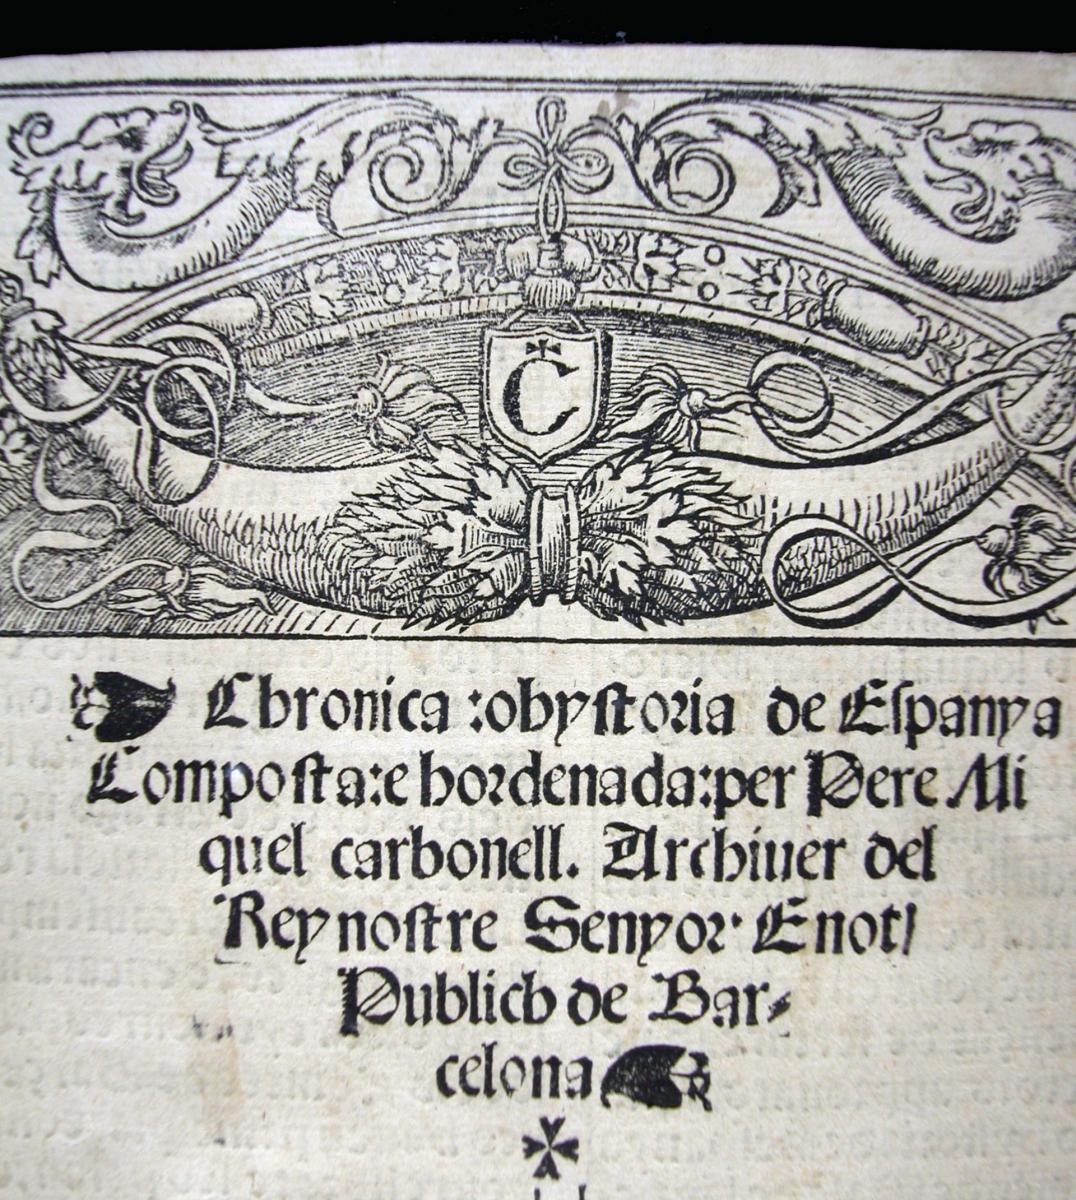 C
❧ Chronica :o hystoria de Espanya
Composta:e hordenada:per Pere Mi
quel carbonell. Archiuer del
Rey nostre Senyor· E not/
Publich de Bar⸗
celona ❧
✠